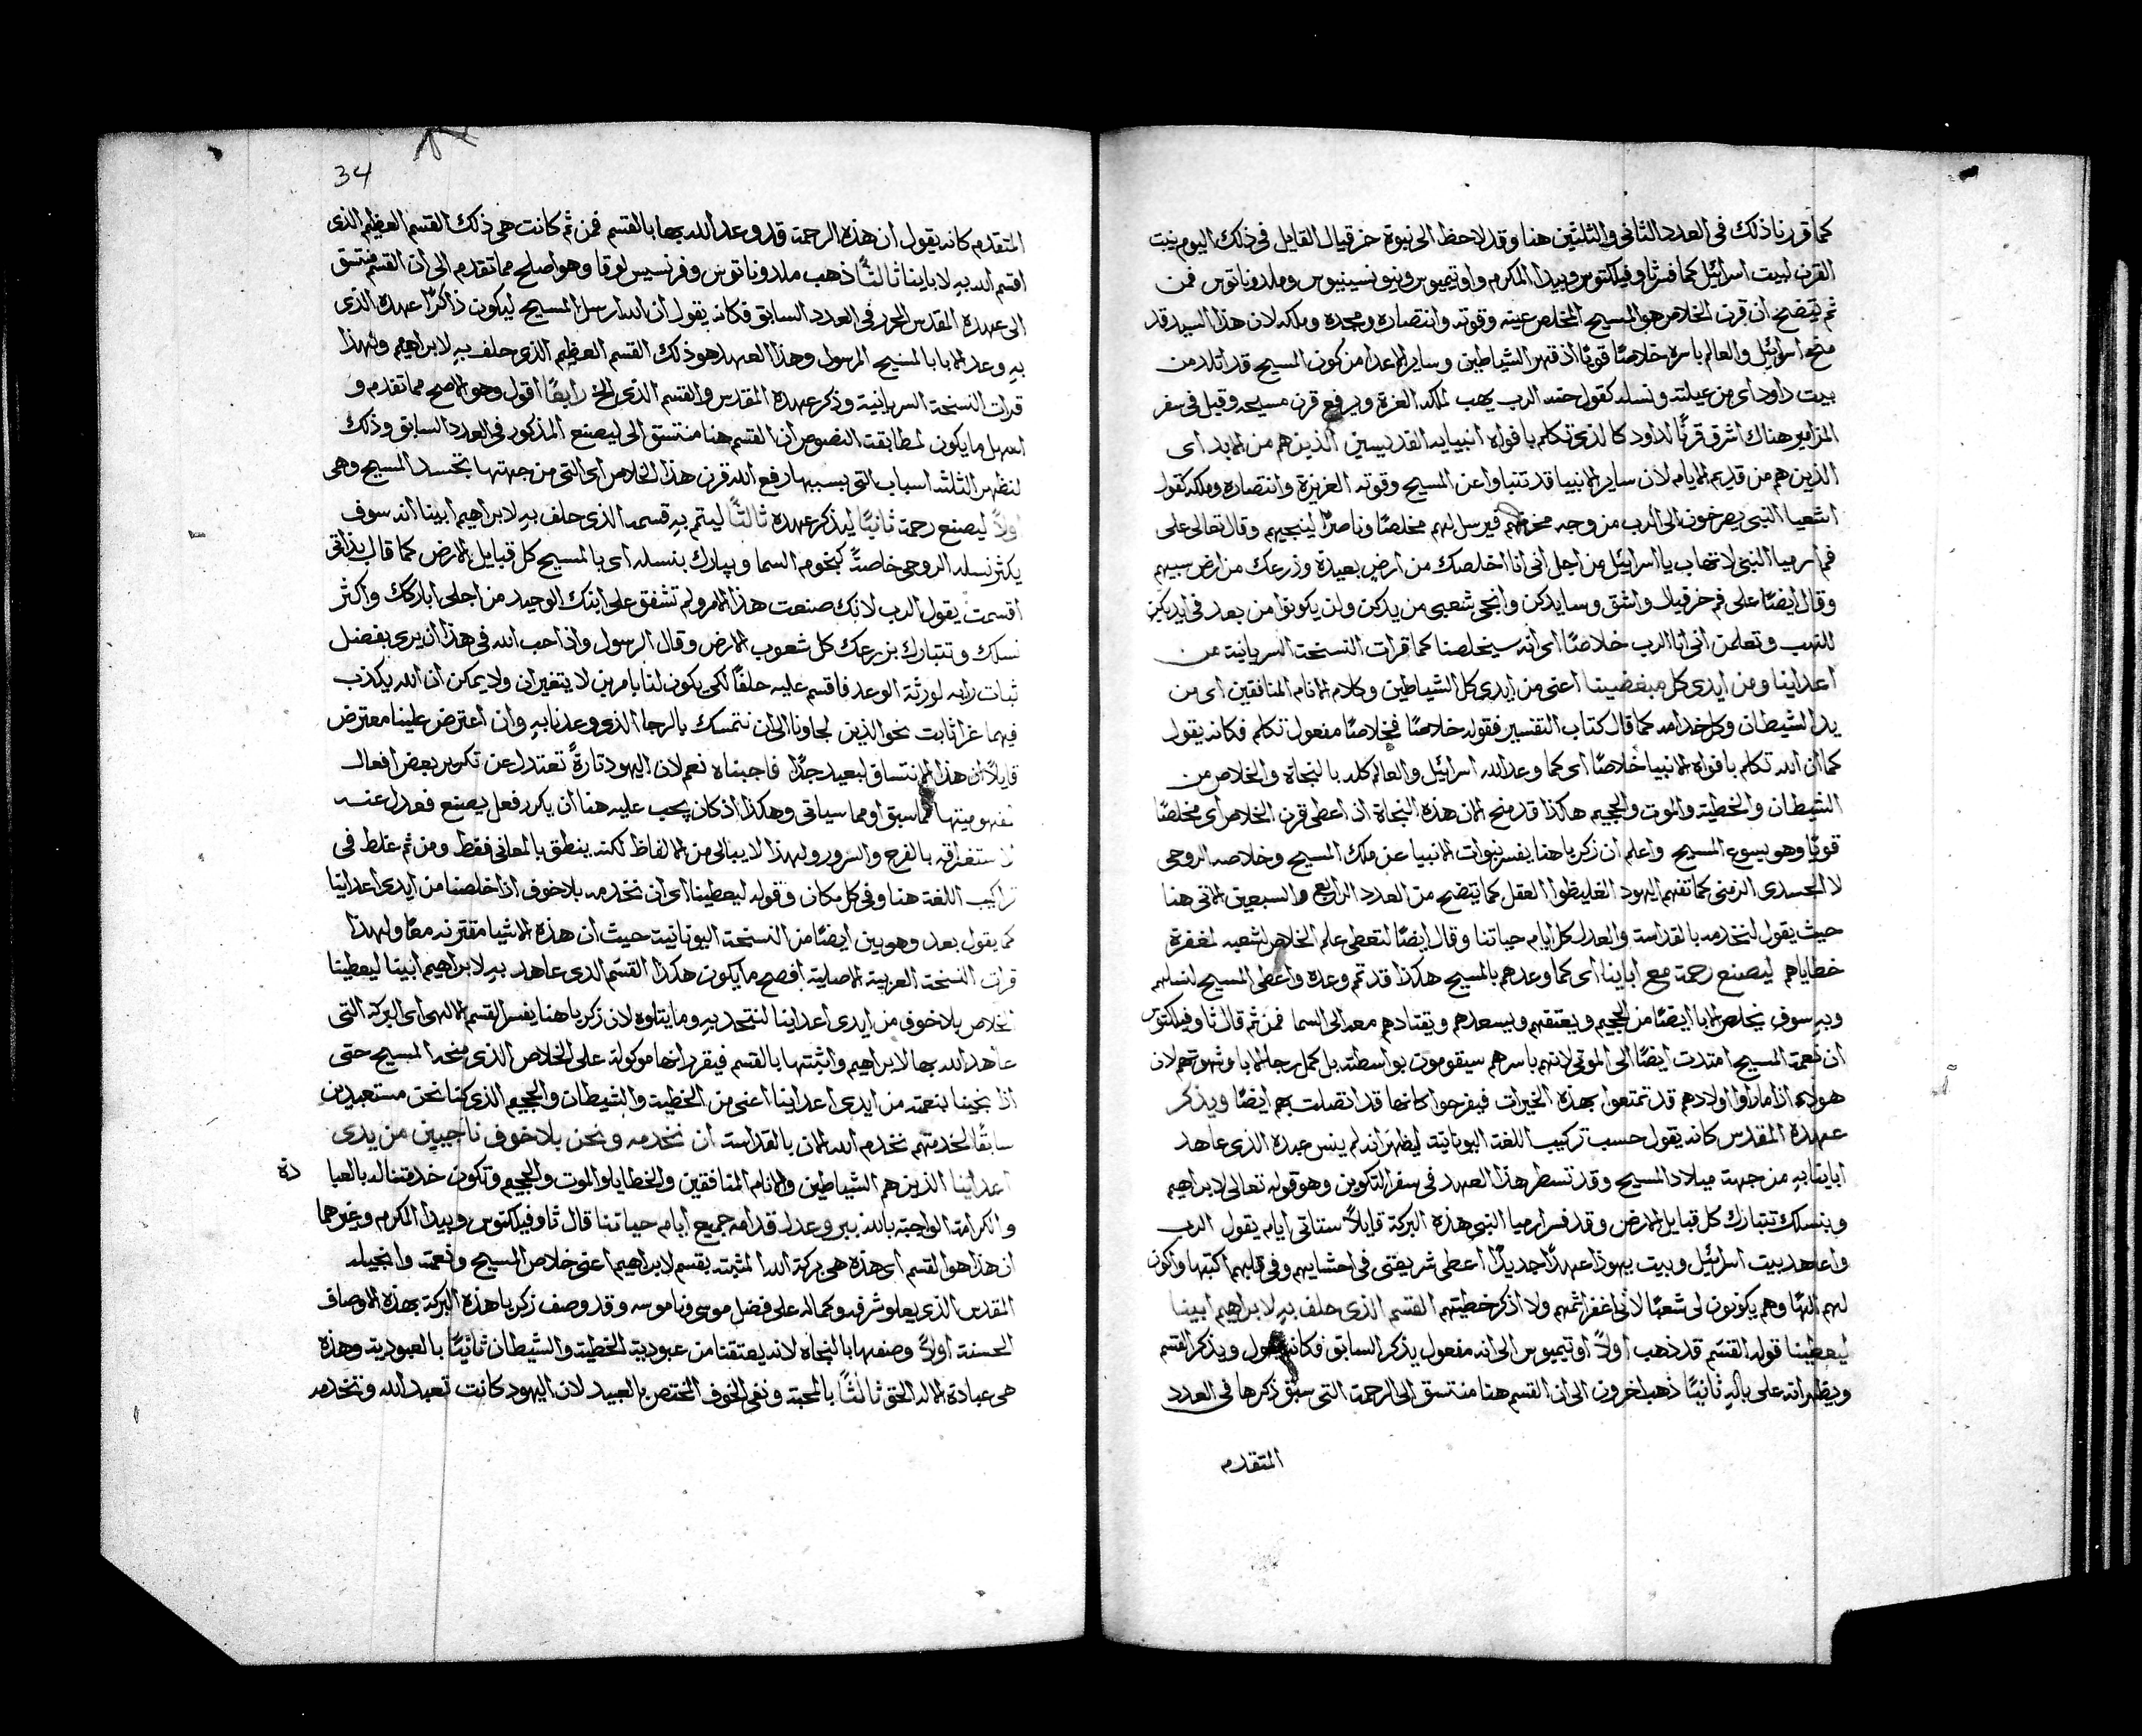 كما قررنا ذلك في العدد الثاني والثلثين هنا وقد لاحظ الى نبوة حزقيال القايل في ذلك اليوم ينبت
القرن لبيت اسرائيل كما فسر ثاوفيلكتوس وبيدا المكرم واوتيميوس وديونسينيوس وملدوناتوس فمن
ثم يتضح ان قرن الخلاص هو المسيح المخلص عينه وقوته وانتصاره ومجده وملكه لان هذا السيد قد
منح اسرائيل والعالم باسره خلاصًا قويًا اذ قهر الشياطين وساير الاعدا من كون المسيح قد اتلد من
بيت داود اى من عيلته ونسله كقول حنه الرب يهب لملكه العزة ويرفع قرن مسيحه وقيل في سفر
المزامير هناك اشرق قرنًا لداود كالذي تكلم بافواه انبيايه القديسين الذين هم من الابد اى
الذين هم من قديم الايام لان ساير الانبيا قد تنباوا عن المسيح وقوته العزيزة وانتصاره وملكه كقول
اشعيا النبي يصرخون الى الرب من وجه محزنهم فيرسل لهم مخلصًا وناصرًا لينجيهم وقال تعالى على
فم ارميا النبي لا تهاب يا اسرائيل من اجل انى انا اخلصك من ارض بعيدة وزرعك من ارض سبيهم
وقال ايضًا على فم حزقيال واشق وسايدكن وانجى شعبى من يدكن ولن يكونوا من بعد في ايديكن
للنهب وتعلمن انى انا الرب خلاصًا اى انه سيخلصنا كما قرات النسخة السريانية من
اعداينا ومن ايدى كل مبغضينا اعنى من ايدى كل الشياطين وكلام الانام المنافقين اى من
يد الشيطان وكل خدامه كما قال كتاب التفسير فقوله خلاصًا فخلاصًا مفعول تكلم فكانه يقول
كما ان الله تكلم بافواه الانبيا خلاصًا اى كما وعد الله اسرائيل والعالم كله بالنجاة والخلاص من
الشيطان والخطية والموت والجحيم هاكذا قد منح الان هذه النجاة اذ اعطى قرن الخلاص اى مخلصًا
قويًا وهو يسوع المسيح واعلم ان زكريا هنا يفسر نبوات الانبيا عن ملك المسيح وخلاصه الروحى
لا الجسدى الزمنى كما تفهم اليهود الغليظوا العقل كما يتضح من العدد الرابع والسبعين الاتى هنا
حيث يقول لنخدمه بالقداسة والعدل كل ايام حياتنا وقال ايضًا لتعطى علم الخلاص لشعبه لمغفرة
خطاياهم ليصنع رحمة مع اباينا اى كما وعدهم بالمسيح هكذا قد تم وعده واعطى المسيح لنسلهم
وبه سوف يخلص الابا ايضًا من الجحيم ويعتقهم ويسعدهم ويقتادهم معه الى السما فمن ثم قال ثاوفيلكتوس
ان نعمة المسيح امتدت ايضًا الى الموتى لانهم باسرهم سيقومون بواسطته بل كمل رجا الابا وشهوتهم لان
هولاء اذا ما راوا اولادهم قد تمتعوا بهذه الخيرات فيفرحوا كانها قد اتصلت بهم ايضًا ويذكر
عهده المقدس كانه يقول حسب تركيب اللغة اليونانية ليظهر انه لم ينس عهده الذي عاهد
اباينا به من جهة ميلاد المسيح وقد تسطر هذا العهد في سفر التكوين وهو قوله تعالى لابراهيم
وبنسلك تتبارك كل قبايل الارض وقد فسر ارميا النبى هذه البركة قايلاً ستاتى ايام يقول الرب
واعاهد بيت اسرائيل وبيت يهوذا عهدًا جديدًا اعطى شريعتى في احشايهم وفى قلبهم اكتبها واكون
لهم الهًا وهم يكونون لى شعبًا لانى اغفر اثمهم ولا اذكر خطيتهم القسم الذي حلف به لابراهيم ابينا
ليعطينا قوله القسم قد ذهب اولاً اوتيميوس الى انه مفعول يذكر السابق فكانه يقول ويذكر القسم
ويظهر انه على باله ثانيًا ذهب اخرون الى ان القسم هنا منتسق الى الرحمة التى سبق ذكرها في العدد
المتقدم
34
المتقدم كانه يقول ان هذه الرحمة قد وعد الله بها بالقسم فمن ثم كانت هى ذلك القسم العظيم الذى
اقسم الله به لاباينا ثالثًا ذهب ملدوناتوس وفرنسيس لوقا وهو اصلح مما تقدم الى ان القسم منتسق
الى عهده المقدس المحرر في العدد السابق فكانه يقول ان الله ارسل المسيح ليكون ذاكرًا عهده الذى
به وعد الابا بالمسيح المرسول وهذا العهد هو ذلك القسم العظيم الذى حلف به لابراهيم ولهذا
قرات النسخة السريانية وذكر عهده المقدس والقسم الذى الخ رابعًا اقول وهو الاصح مما تقدم و
اسهل ما يكون لمطابقة النصوص ان القسم هنا منتسق الى ليصنع المذكور في العدد السابق وذلك
لتظهر الثلثة اسباب التى بسببها رفع الله قرن هذا الخلاص اى التى من جهتها تجسد المسيح وهى
اولاً ليصنع رحمة ثانيًا ليذكر عهده ثالثًا ليتم به قسمه الذى حلف به لابراهيم ابينا انه سوف
يكثر نسله الروحى خاصةً كنجوم السما ويبارك بنسله اى بالمسيح كل قبايل الارض كما قال بذاتى
اقسمت يقول الرب لانك صنعت هذا الامر ولم تشفق على ابنك الوحيد من اجلى اباركك واكثر
نسلك وتتبارك بزرعك كل شعوب الارض وقال الرسول واذ احب الله في هذا ان يرى بفضل
ثبات رايه لورثة الوعد فاقسم عليه حلفًا لكى يكون لنا بامرين لا يتغيران ولا يمكن ان الله يكذب
فيهما عزا ثابت نحو الذين لجاونا الى ان نتمسك بالرجا الذى وعدنا به وان اعترض علينا معترض
قايلاً ان هذا الانتساق لبعيد جدًا فاجبناه نعم لان اليهود تارةً تعتدل عن تكرير بعض افعال
مفهوميتها مما سبق او مما سياتى وهكذا اذ كان يجب عليه هنا ان يكرر فعل يصنع فعدل عنه
لاستغراقه بالفرح والسرور ولهذا لا يبالى من الالفاظ لكنه ينطق بالمعانى فقط ومن ثم غلط في
تراكيب اللغة هنا وفى كل مكان وقوله ليعطينا اى ان نخدمه بلا خوف اذا خلصنا من ايدى اعداينا
كما يقول بعد وهو بين ايضًا من النسخة اليونانية حيث ان هذه الاشيا مقترنه معًا ولهذا
قرات النسخة العربية الاصلية افصح ما يكون هكذا القسم الذى عاهد به لابراهيم ابينا ليعطينا
الخلاص بلا خوف من ايدى اعداينا لنتحد به وما يتلوه لان زكريا هنا يفسر القسم الالهى اى البركة التى
عاهد الله بها لابراهيم واثبتها بالقسم فيقرر انها موكولة على الخلاص الذى منحه المسيح حتى
اذا نجينا بنعمته من ايدى اعداينا اعنى من الخطية والشيطان والجحيم الذى كنا نحن مستعبدين
سابقًا لخدمتهم نخدم الله الان بالقداسة ان نخدمه ونحن بلا خوف ناجيين من يدى
اعداينا الذين هم الشياطين والانام المنافقين والخطايا والموت والجحيم وتكون خدمتنا له بالعبا
دة
والكرامة الواجبة بالله ببر وعدل قدامه جميع ايام حياتنا قال ثاوفيلكتوس وبيدا المكرم وغيرهما
ان هذا هو القسم اى هذه هى بركة الله المثبتة بقسم لابراهيم اعنى خلاص المسيح ونعمته وانجيله
المقدس الذى يعلو شرفه وكماله على فضل موسى وناموسه وقد وصف زكريا هذه البركة بهذه الاوصاف
الحسنة اولاً وصفها بالنجاه لانه يعتقنا من عبودية الخطية والشيطان ثانيًا بالعبودية وهذه
هى عبادة الاله الحق ثالثًا بالمحبة ونفى الخوف المختص بالعبيد لان اليهود كانت تعبد الله وتخدمه